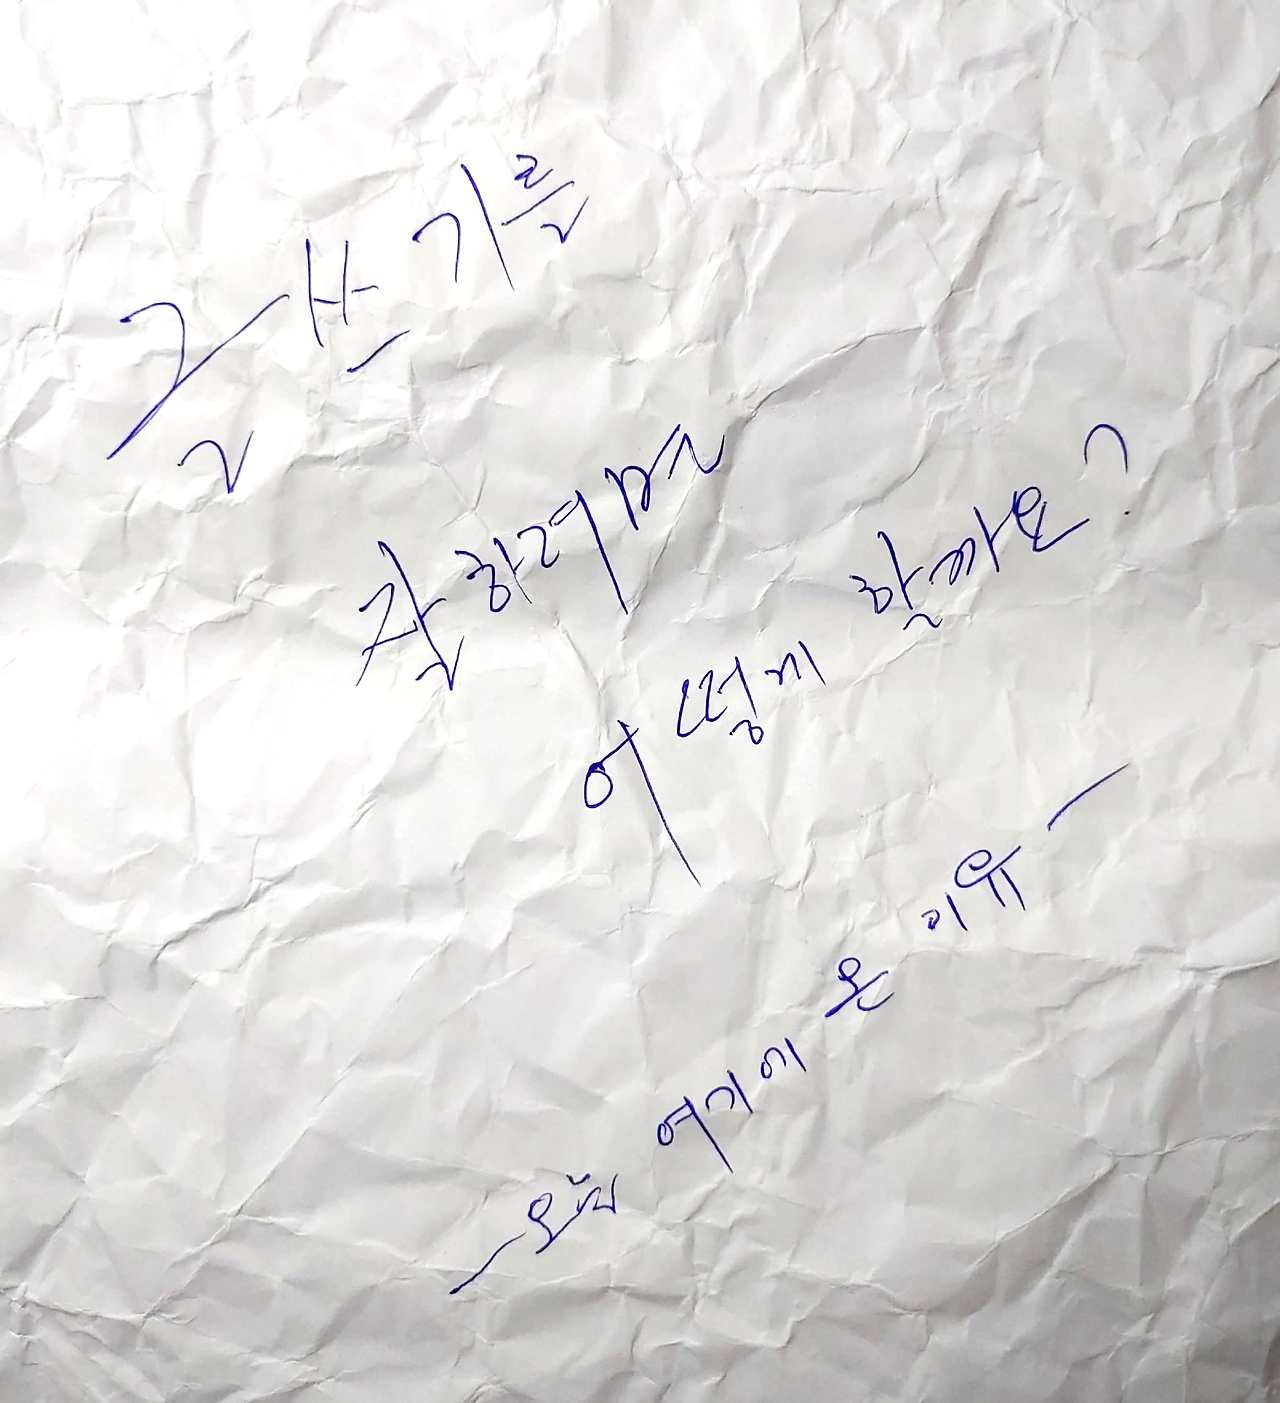 글쓰기를
잘하려면
어떻게 할까요?
- 오늘 여기에 온 이유 -